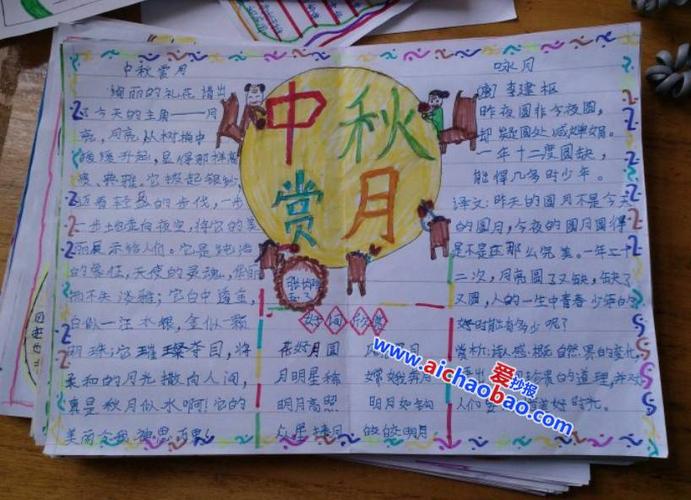 中秋赏月
绚丽的礼花 措出
了今天的主角——月
亮，月亮从树梢中
缓缓升起，显得那样
典雅。它披起银纱，
迈着轻盈的步伐，一步
一步地走向夜空，将它的美
丽展示给人们。它是纯洁
的象征，天使的灵魂，华丽
而不失淡雅；它白中透金，
白似一汪水银，金似一颗
明珠；它璀璨夺目，将
柔和的月光撒向人间，
真是秋月似水啊！它的
美丽令我
中秋
赏月
好词欣赏
花好月圆
月明星稀
明月高照
众星捧月
嫦娥奔月
明月如钩
皎皎明月
咏月
李建枢
昨夜圆非今夜圆，
却疑圆处减婵娟。
一年十二度圆缺，
能得几多时少年。
译文：昨天的圆月不是今天
的圆月，今夜的圆月圆得
是不是还那么完美。一年十
二次，月亮圆了又缺，缺了
又圆，人的一生中青春少年的
好时能有多少呢？
赏析：诗人感
珍贵的道理，并对
人们
好时光。
www.aichaobao.com
爱抄报